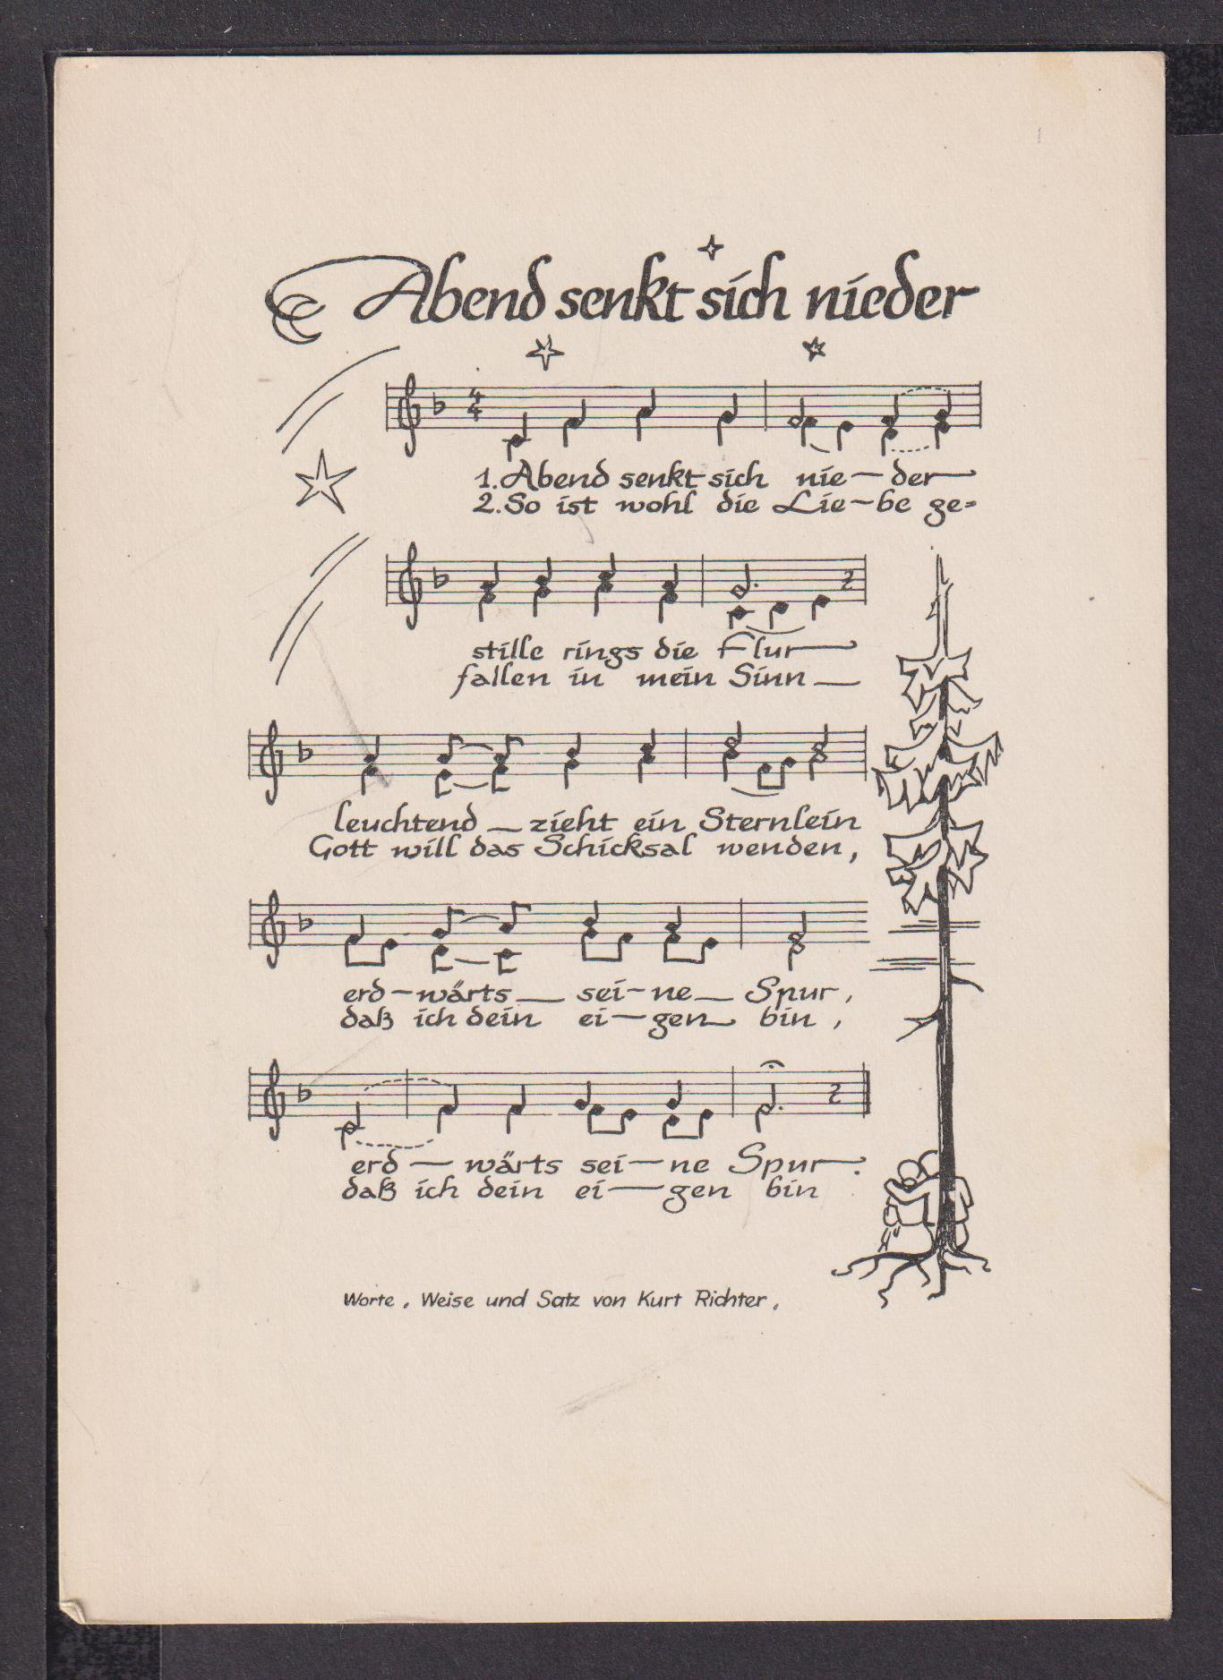 Abend senkt sich nieder
1. Abend senkt sich nie-der
2. So ist wohl die Lie-be ge=
stille rings die Flur
fallen in mein Sinn
leuchtend zieht ein Sternlein
Gott will das Schicksal wenden,
erd-wärts sei-ne Spur,
daß ich dein ei-gen bin,
erd-wärts sei-ne Spur.
daß ich dein ei-gen bin
Worte, Weise und Satz von Kurt Richter,